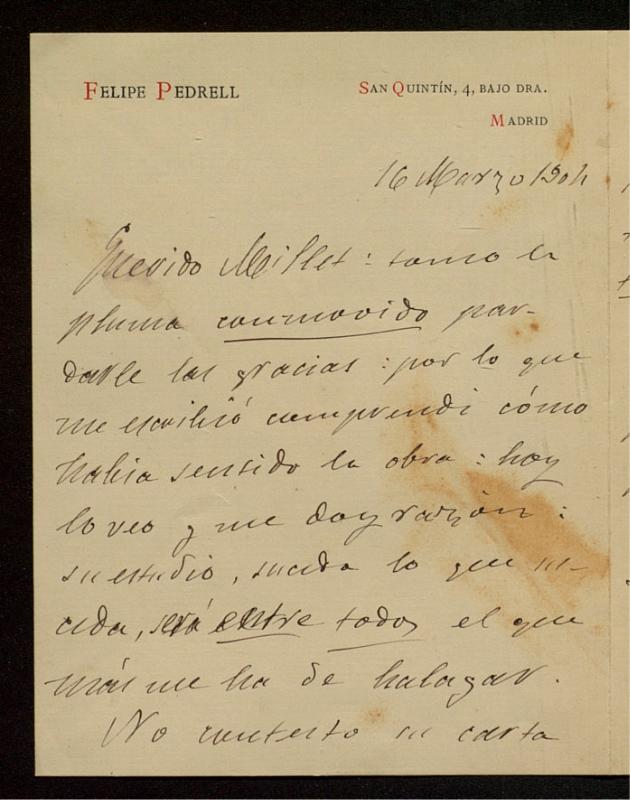 FELIPE PEDRELL
SAN QUINTÍN, 4, BAJO DRA.
MADRID
16 Marzo 1904
Querido Millet: tomo la
pluma conmovido par-
darle las gracias: por lo que
me escribió comprendi cómo
habia sentido la obra: hoy
lo veo y me doy razón:
su estudio, suceda lo que su-
ceda, será entre todos el que
más me ha de halagar.
No contesto su carta